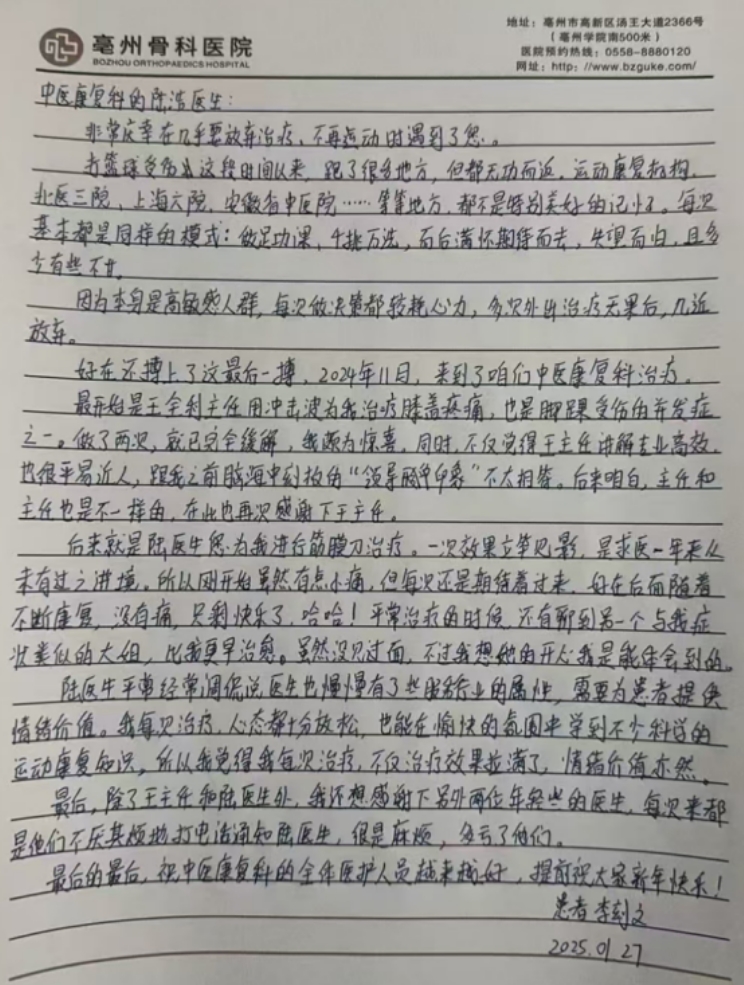 亳州骨科医院
BOZHOU ORTHOPAEDICS HOSPITAL
地址：亳州市高新区汤王大道2366号
（亳州学院南500米）
医院预约热线：0558-8880120
网址：http：//www.bzguke.com/
中医康复科的陆浩医生：
非常庆幸在几乎要放弃治疗、不再运动时遇到了您。
打篮球受伤以这段时间以来，跑了很多地方，但都无功而返。运动康复机构、
北医三院、上海六院、安徽省中医院……等等地方，都不是特别美好的记忆。每次
基本都是同样的模式：做足功课，千挑万选，而后满怀期待而去，失望而归，且多
少有些不甘。
因为本身是高敏感人群，每次做决策都较耗心力，多次外出治疗无果后，几近
放弃。
好在还搏上了这最后一搏，2024年11月，来到了咱们中医康复科治疗。
最开始是王全利主任用冲击波为我治疗膝盖疼痛，也是脚踝受伤的并发症
之一。做了两次，就已完全缓解，我颇为惊喜。同时，不仅觉得王主任讲解专业高效，
也很平易近人，跟我之前脑海中刻板的“领导印象”不太相符。后来明白，主任和
主任也是不一样的，在此也再次感谢下王主任。
后来就是陆医生您为我进行筋膜刀治疗。一次效果立竿见影，是求医一年来从
未有过之进境。所以刚开始虽然有点小痛，但每次还是期待着过来，好在后面随着
不断康复，没有痛，只剩快乐了，哈哈！平常治疗的时候，还有聊到另一个与我症
状类似的大姐，比我更早治愈。虽然没见过面，不过我想她的开心我是能体会到的。
陆医生平常经常调侃说医生也慢慢有了些服务行业的属性，需要为患者提供
情绪价值。我每次治疗，心态都十分放松，也能在愉快的氛围中学到不少科学的
运动康复知识，所以我觉得我每次治疗，不仅治疗效果拉满了，情绪价值亦然。
最后，除了王主任和陆医生外，我还想感谢下另外两位年轻些的医生，每次来都
是他们不厌其烦地打电话通知陆医生，很是麻烦，多亏了他们。
最后的最后，祝中医康复科的全体医护人员越来越好，提前祝大家新年快乐！
患者 李刻文
2025.01.27